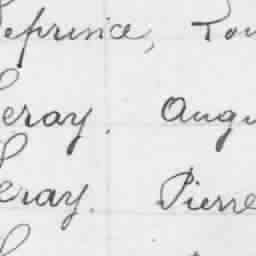 Leprince, Lou
Leray. Augu
Leray. Pierre